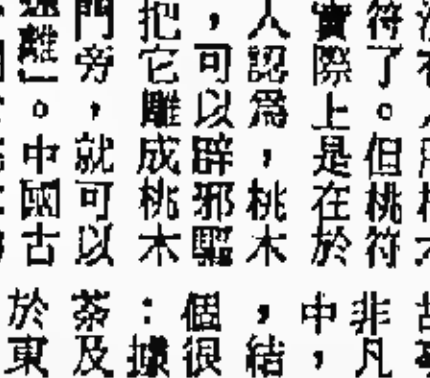 符了。但桃符
實際上是在於
人認爲，桃木
，可以辟邪驅
把它雕成桃木
門旁，就可以
離」。中國古
非凡
中，
，結
個很
：據
荼及
於東